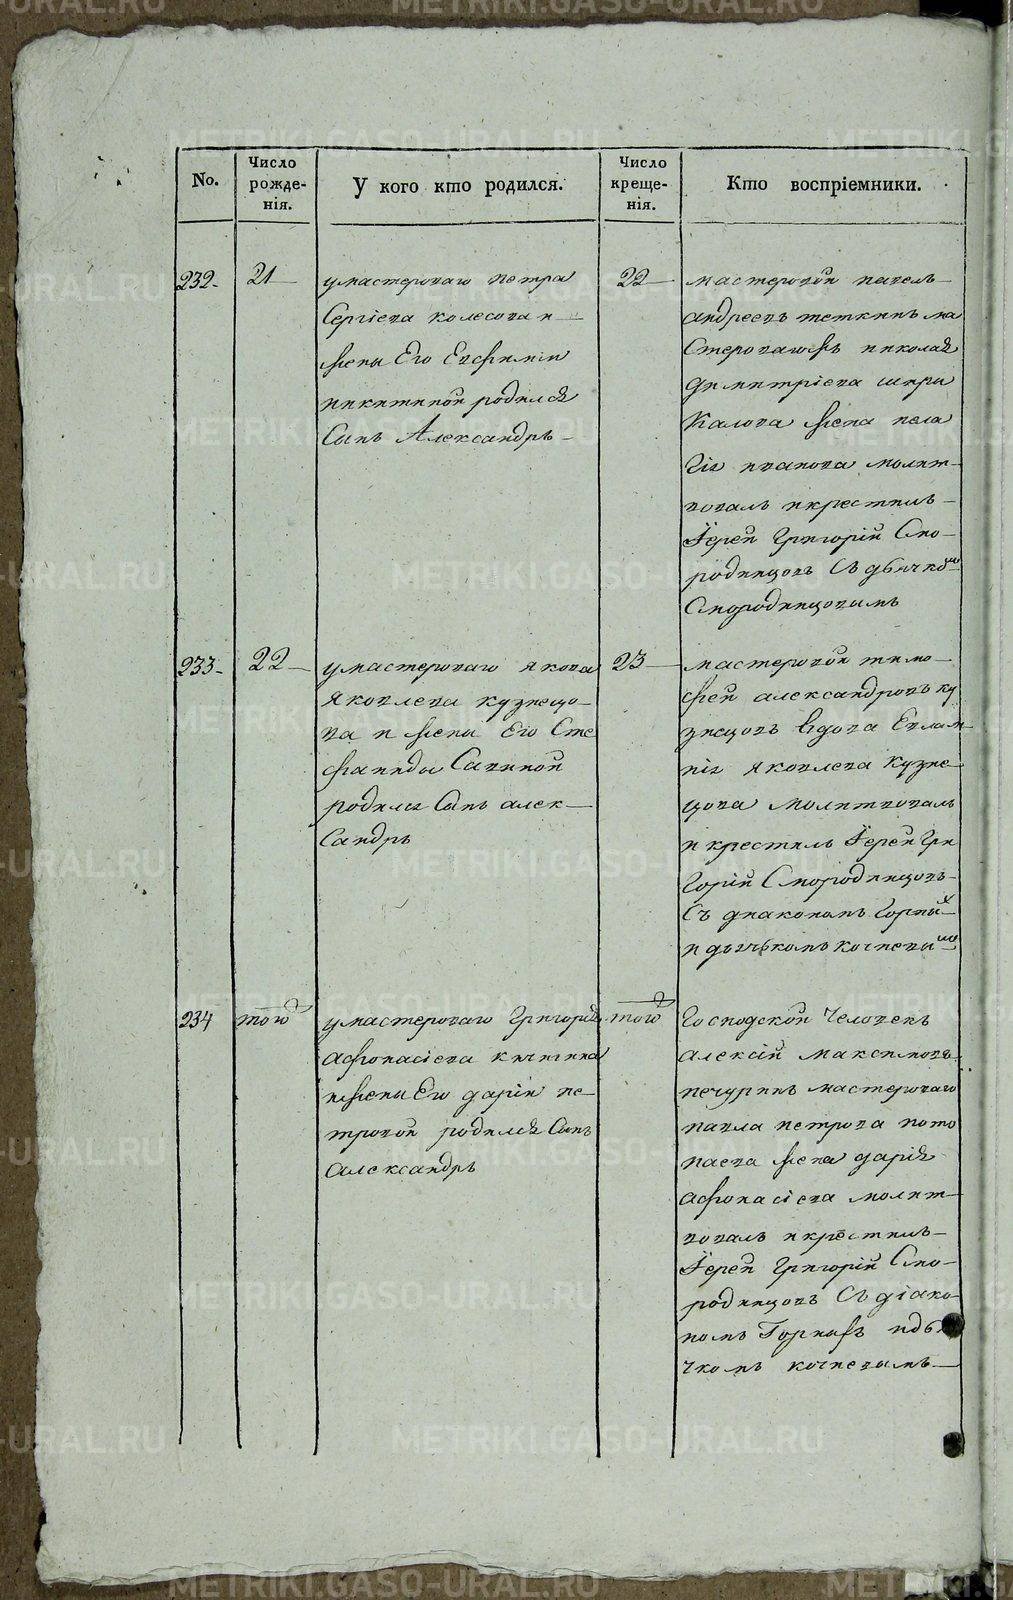 No.
Число рожде-нія.
У кого кто родился.
Число креще-нія.
Кто воспріемники.
232-
21
умастероваго петра
Сергіева колесова и
жены Его Евфиміи
никитиной родился
Сынъ Александръ
22
мастеровой павелъ
андреевъ теткинъ ма
стероваго николая
димитріева
калова жена пела
гія иванова молит-
вовалъ икрестилъ
Іерей Григорій Смо-
родинцовъ Съ дьячкомъ
Смородинцовымъ
233-
22
умастероваго якова
яковлева кузнецо-
ва и жены Его Сте
фаниды Савиной
родился Сынъ алек-
Сандръ
23
мастеровой тимо-
фей александровъ ку
знецовъ вдова Евлам
пія яковлева кузне-
цова молитвовалъ
и крестилъ Іерей Гри
горій Смородинцовъ
Съ диакономъ Горныхъ
и дьячькомъ кочневымъ
234
того
умастероваго Григорія
афонасіева
ижены Его даріи пе-
тровой родился Сынъ
Александръ
того
Господской Человекъ
алексій максимовъ
печуринъ мастероваго
павла петрова пото
паева жена дарія
афонасіева молит-
вовалъ икрестилъ
Іерей Григорій Смо-
родинцовъ Съ діако-
номъ Горныхъ идья
чкомъ кочневымъ
METRIKI.GASO-URAL.RU